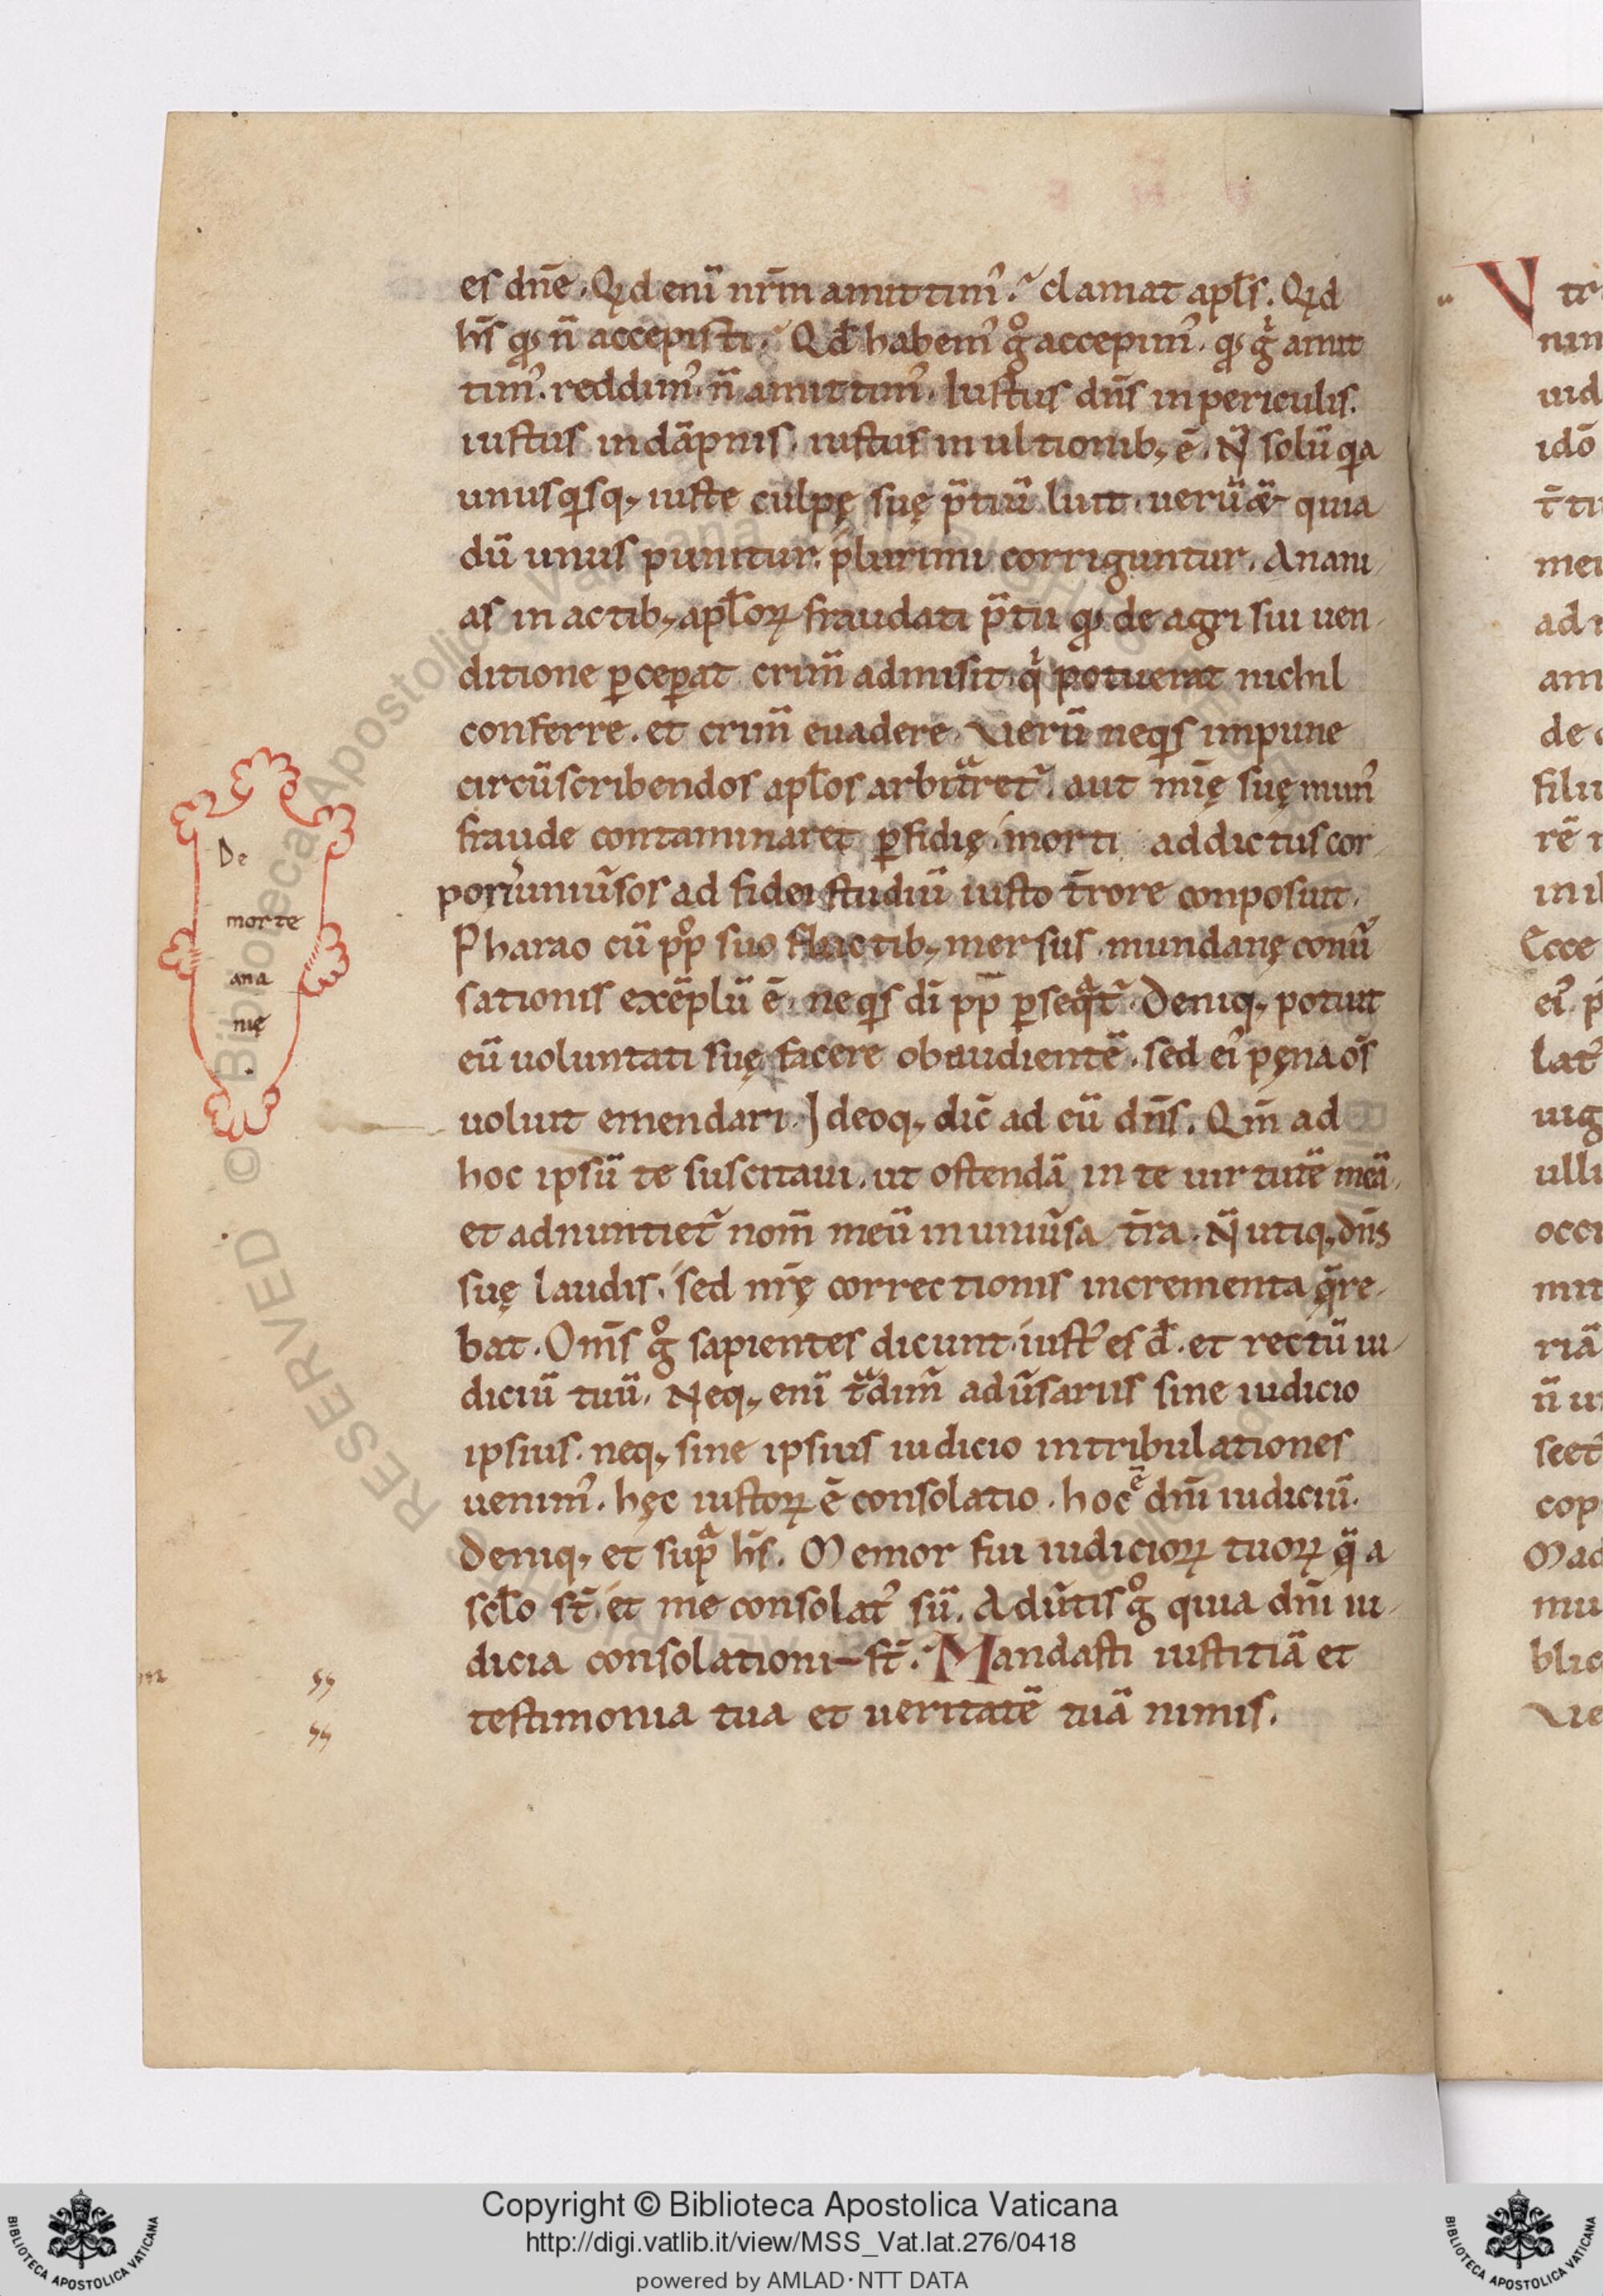 es dn̄e. Qͥd enī nr̄m amittimꝰ? clamat apl̄s. Qͥd
hн̄s qͦ n̄ accepisti? Qd̄ habemꝰ gͦ accepimꝰ. qͦ gͥ amit
timꝰ. reddimꝰ. n̄ amittimꝰ. Iustus dn̄s in periculis.
iustus in dāpnis. iustus in ultionib; ē. N̄ solū qͥa
unusqͥsq; iuste culpę suę p̄tiū luit. uerū &̄ quia
dū unus punitur. plurimi corriguntur. Anani
as in actib; apl̄oꝝ fraudati p̄tii qͦ de agri sui uen
ditione ꝑceꝑat crim̄ admisit. qͥ potuerat nichil
conferre. et crim̄ euadere. Verū neqͥs impune
circūscribendos apl̄os arbitͣret᷑. aut mīę suę munꝰ
fraude contaminaret ꝑfidię. morti addictus cor
poris uniūsos ad fidei studiū iusto t̄rore conposuit.
Pharao cū ppͦ suo fluctib; mersus mundanę conū
sationis exēplū ē. neqͥs dī pp̄ ꝑseqͣt᷑. Deniq; potuit
eū uoluntati suę facere obaudientē. sed eiꝰ pęna om̄s
uoluit emendari. Ideoq; dic̄ ad eū dn̄s. Qm̄ ad
hoc ipsū te suscitaui. ut ostendā in te uirtutē meā.
et adnuntiet᷑ nom̄ meū in uniūsa t̄ra. N̄ utiq; dn̄s
suę laudis. sed nr̄ę correctionis incrementa qͣre
bat. Om̄s gͦ sapientes dicunt. iustꝰ es d̄. et rectū iu
diciū tuū. Neq; enī tͣdim̄ adūsariis sine iudicio
ipsius. neq; sine ipsius iudicio in tribulationes
uenimꝰ. hęc iustoꝝ ē consolatio. hoc ē dn̄i iudiciū.
Deniq; et supͣ hн̄s. Memor fui iudicioꝝ tuoꝝ q̄ a
scl̄o st̄. et me consolatꝰ sū. Adūtis gͦ quia dn̄i iu
dicia consolationi st̄. Mandasti iustitiā et
testimonia tua et ueritatē tuā nimis.
De
morte
ana
nię
Copyright © Biblioteca Apostolica Vaticana
http://digi.vatlib.it/view/MSS_Vat.lat.276/0418
powered by AMLAD·NTT DATA
BIBLIOTECA APOSTOLICA VATICANA
BIBLIOTECA APOSTOLICA VATICANA